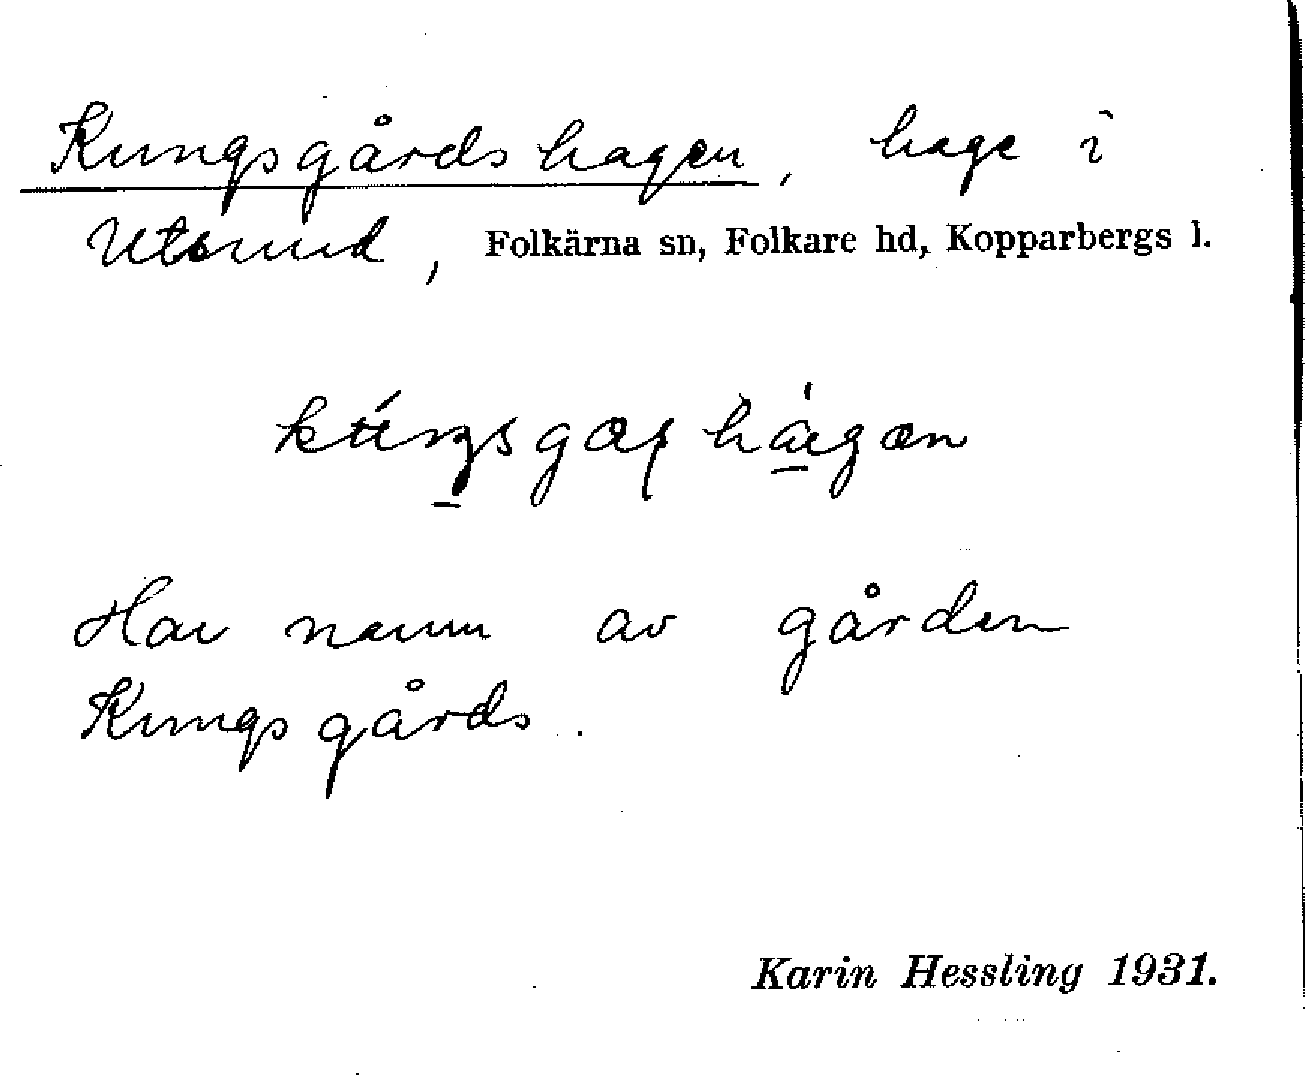 Kungsgårdshagen, hage i
Utsund, Folkärna sn, Folkare hd, Kopparbergs l.
Har namn av gården
Kungsgårds.
Karin Hessling 1931.